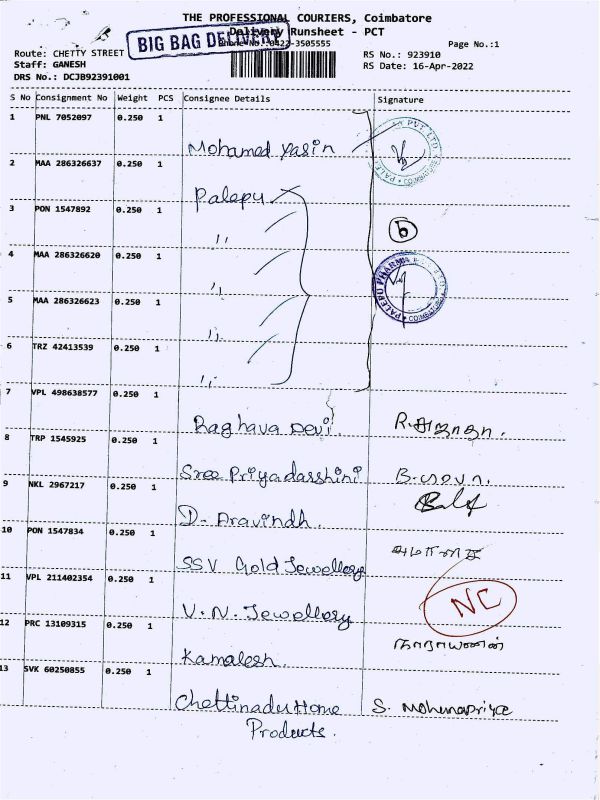 THE PROFESSIONAL COURIERS, Coimbatore
Delivery Runsheet - PCT
BIG BAG DELIVERY
Phone No.:0422-3505555
Page No.:1
Route: CHETTY STREET
RS No.: 923910
Staff: GANESH
RS Date: 16-Apr-2022
DRS No.: DCJB92391001
S No Consignment No Weight PCS Consignee Details Signature
1 PNL 7052097 0.250 1
Mohamed Yasin
2 MAA 286326637 0.250 1
Palepu
3 PON 1547892 0.250 1
,,
6
4 MAA 286326620 0.250 1
,,
5 MAA 286326623 0.250 1
,,
6 TRZ 42413539 0.250 1
,,
7 VPL 498638577 0.250 1
Raghava Devi. R.சுஜாதா.
8 TRP 1545925 0.250 1
Sree Priyadarshini
9 NKL 2967217 0.250 1
D. Aravindh.
10 PON 1547834 0.250 1
SSV Gold Jewellery
11 VPL 211402354 0.250 1
V.N. Jewellery NC
12 PRC 13109315 0.250 1
Kamalesh. நாராயணன்
13 SVK 60250855 0.250 1
Chettinadu Home S. Mohanapriya
Products.